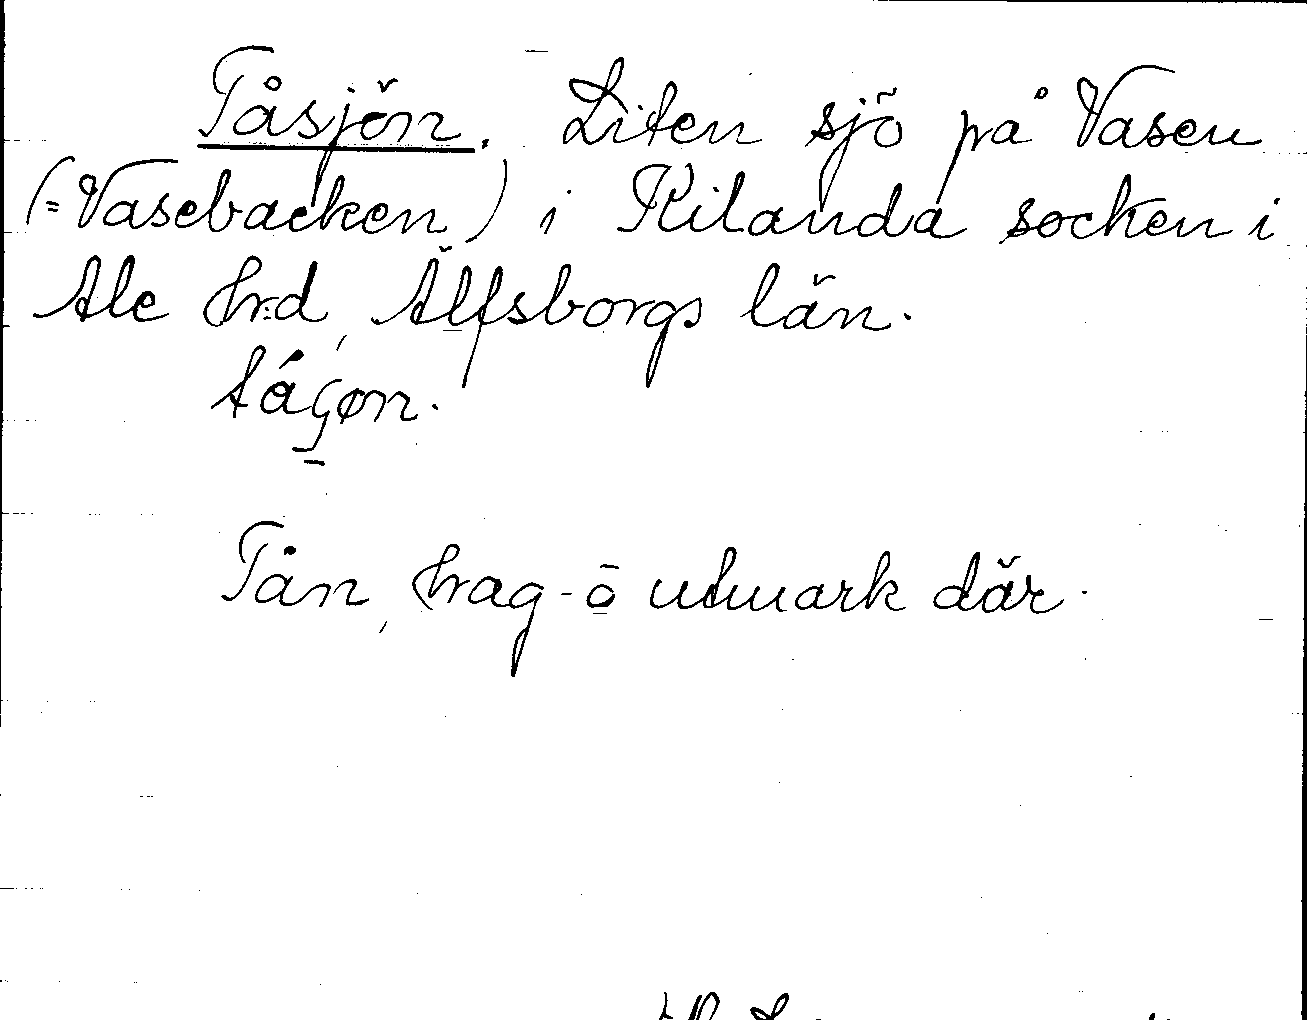 Tåsjön. Liten sjö på Vasen
(= Vasebacken) i Kilanda socken i
Ale hrd, Älfsborgs län.
Tån, hag- o utmark där.